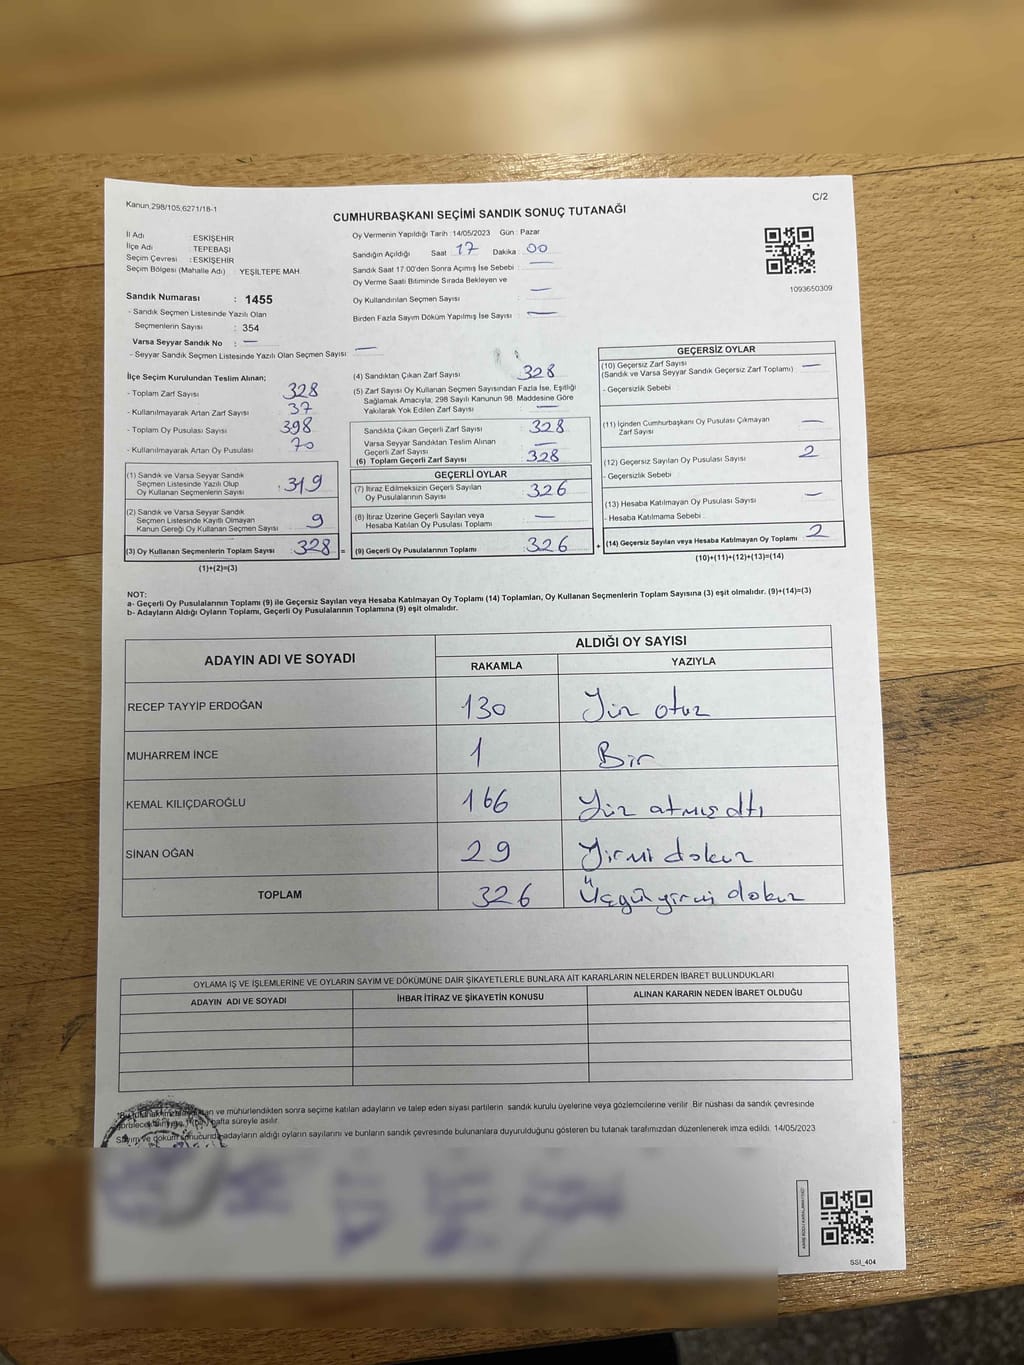 Kanun,298/105,6271/18-1
C/2
CUMHURBAŞKANI SEÇİMİ SANDIK SONUÇ TUTANAĞI
İl Adı : ESKİŞEHİR
İlçe Adı : TEPEBAŞI
Seçim Çevresi : ESKİŞEHİR
Seçim Bölgesi (Mahalle Adı) : YEŞİLTEPE MAH.
Sandık Numarası : 1455
- Sandık Seçmen Listesinde Yazılı Olan
Seçmenlerin Sayısı : 354
Varsa Seyyar Sandık No : —
- Seyyar Sandık Seçmen Listesinde Yazılı Olan Seçmen Sayısı : —
Oy Vermenin Yapıldığı Tarih :14/05/2023 Gün : Pazar
Sandığın Açıldığı Saat 17 Dakika 00
Sandık Saat 17 00'den Sonra Açımış İse Sebebi : —
Oy Verme Saati Bitiminde Sırada Bekleyen ve
Oy Kullandırılan Seçmen Sayısı : —
Birden Fazla Sayım Döküm Yapılmış İse Sayısı : —
1093650309
İlçe Seçim Kurulundan Teslim Alınan;
- Toplam Zarf Sayısı : 328
- Kullanılmayarak Artan Zarf Sayısı : 37
- Toplam Oy Pusulası Sayısı : 398
- Kullanılmayarak Artan Oy Pusulası : 70
(1) Sandık ve Varsa Seyyar Sandık
Seçmen Listesinde Yazılı Olup
Oy Kullanan Seçmenlerin Sayısı : 319
(2) Sandık ve Varsa Seyyar Sandık
Seçmen Listesinde Kayıtlı Olmayan
Kanun Gereği Oy Kullanan Seçmen Sayısı : 9
(3) Oy Kullanan Seçmenlerin Toplam Sayısı : 328 =
(1)+(2)=(3)
(4) Sandıktan Çıkan Zarf Sayısı : 328
(5) Zarf Sayısı Oy Kullanan Seçmen Sayısından Fazla İse, Eşitliği
Sağlamak Amacıyla; 298 Sayılı Kanunun 98. Maddesine Göre
Yakılarak Yok Edilen Zarf Sayısı : —
Sandıkta Çıkan Geçerli Zarf Sayısı : 328
Varsa Seyyar Sandıktan Teslim Alınan
Geçerli Zarf Sayısı : —
(6) Toplam Geçerli Zarf Sayısı : 328
GEÇERLİ OYLAR
(7) İtiraz Edilmeksizin Geçerli Sayılan
Oy Pusulalarının Sayısı : 326
(8) İtiraz Üzerine Geçerli Sayılan veya
Hesaba Katılan Oy Pusulası Toplamı : —
(9) Geçerli Oy Pusulalarının Toplamı : 326 +
GEÇERSİZ OYLAR
(10) Geçersiz Zarf Sayısı
(Sandık ve Varsa Seyyar Sandık Geçersiz Zarf Toplamı) : —
- Geçersizlik Sebebi :
(11) İçinden Cumhurbaşkanı Oy Pusulası Çıkmayan
Zarf Sayısı : —
(12) Geçersiz Sayılan Oy Pusulası Sayısı : 2
- Geçersizlik Sebebi :
(13) Hesaba Katılmayan Oy Pusulası Sayısı : —
- Hesaba Katılmama Sebebi :
(14) Geçersiz Sayılan veya Hesaba Katılmayan Oy Toplamı : 2
(10)+(11)+(12)+(13)=(14)
NOT:
a- Geçerli Oy Pusulalarının Toplamı (9) ile Geçersiz Sayılan veya Hesaba Katılmayan Oy Toplamı (14) Toplamları, Oy Kullanan Seçmenlerin Toplam Sayısına (3) eşit olmalıdır. (9)+(14)=(3)
b- Adayların Aldığı Oyların Toplamı, Geçerli Oy Pusulalarının Toplamına (9) eşit olmalıdır.
ADAYIN ADI VE SOYADI
ALDIĞI OY SAYISI
RAKAMLA YAZIYLA
RECEP TAYYİP ERDOĞAN 130 Yüz otuz
MUHARREM İNCE 1 Bir
KEMAL KILIÇDAROĞLU 166 Yüz atmış altı
SİNAN OĞAN 29 Yirmi dokuz
TOPLAM 326 Üçyüz yirmi dokuz
OYLAMA İŞ VE İŞLEMLERİNE VE OYLARIN SAYIM VE DÖKÜMÜNE DAİR ŞİKAYETLERLE BUNLARA AİT KARARLARIN NELERDEN İBARET BULUNDUKLARI
ADAYIN ADI VE SOYADI İHBAR İTİRAZ VE ŞİKAYETİN KONUSU ALINAN KARARIN NEDEN İBARET OLDUĞU
ve mühürlendikten sonra seçime katılan adayların ve talep eden siyasi partilerin sandık kurulu üyelerine veya gözlemcilerine verilir. Bir nüshası da sandık çevresinde
hafta süreyle asılır.
Sayım ve döküm sonucunda adayların aldığı oyların sayılarını ve bunların sandık çevresinde bulunanlara duyurulduğunu gösteren bu tutanak tarafımızdan düzenlenerek imza edildi. 14/05/2023
SSI_404